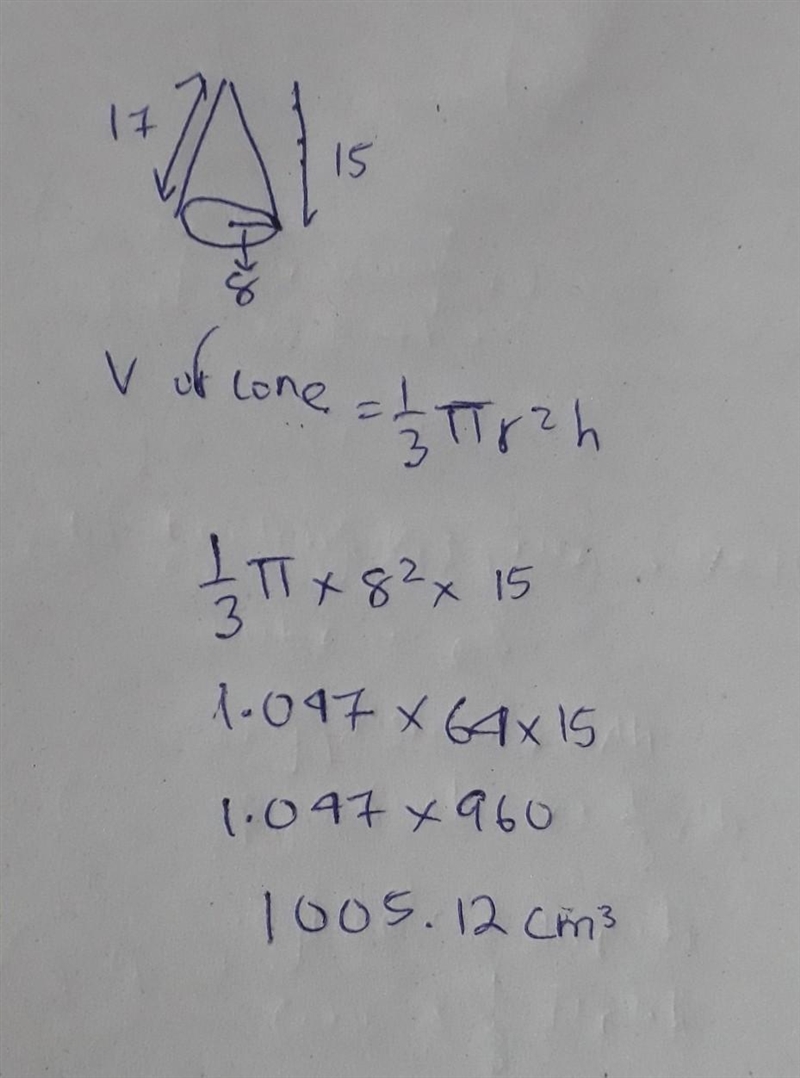 17
15
8
V of cone = 1/3 πr²h
1/3 π × 8² × 15
1.047 × 64 × 15
1.047 × 960
1005.12 cm³